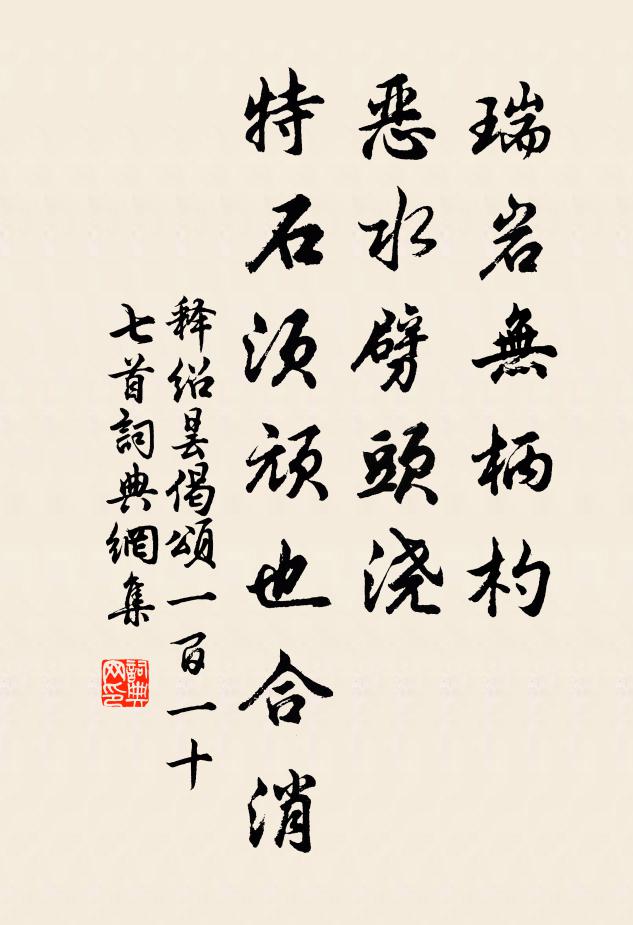 瑞岩無柄杓
恶水劈頭浇
特石须顽也合消
释绍昙偈颂一百一十
七首詞典網集
詞典网印